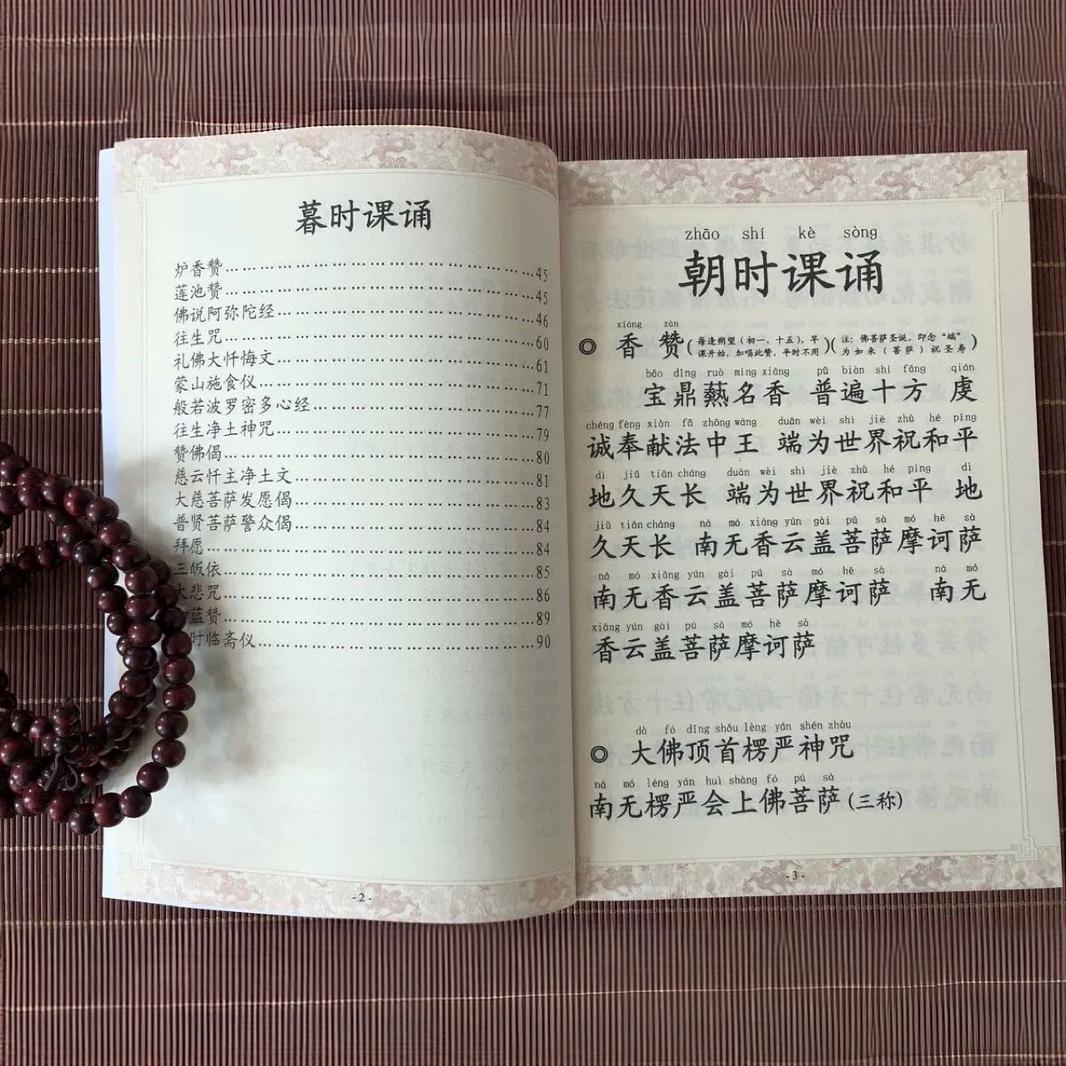 暮时课诵
炉香赞……………………………………45
莲池赞……………………………………45
佛说阿弥陀经……………………………46
往生咒……………………………………60
礼佛大忏悔文……………………………61
蒙山施食仪………………………………71
般若波罗密多心经………………………77
往生净土神咒……………………………79
赞佛偈……………………………………80
慈云忏主净土文…………………………81
大慈菩萨发愿偈…………………………83
普贤菩萨警众偈…………………………84
拜愿………………………………………84
三皈依……………………………………85
大悲咒……………………………………86
蓝赞………………………………………89
时临斋仪…………………………………90
-2-
zhāo shí kè sòng
朝时课诵
xiāng zàn
◎ 香赞(每逢朔望(初一,十五),早课开始,加唱此赞,平时不用)(注:佛菩萨圣诞,即念“端为如来(菩萨)祝圣寿)
bǎo dǐng ruò míng xiāng pǔ biàn shí fāng qián
宝鼎爇名香 普遍十方 虔
chéng fèng xiàn fǎ zhōng wáng duān wèi shì jiè zhù hé píng
诚奉献法中王 端为世界祝和平
dì jiǔ tiān cháng duān wèi shì jiè zhù hé píng dì
地久天长 端为世界祝和平 地
jiǔ tiān cháng ná mó xiāng yún gài pú sà mó hē sà
久天长 南无香云盖菩萨摩诃萨
ná mó xiāng yún gài pú sà mó hē sà ná mó
南无香云盖菩萨摩诃萨 南无
xiāng yún gài pú sà mó hē sà
香云盖菩萨摩诃萨
dà fó dǐng shǒu lèng yán shén zhòu
◎ 大佛顶首楞严神咒
ná mó léng yán huì shàng fó pú sà
南无楞严会上佛菩萨(三称)
-3-